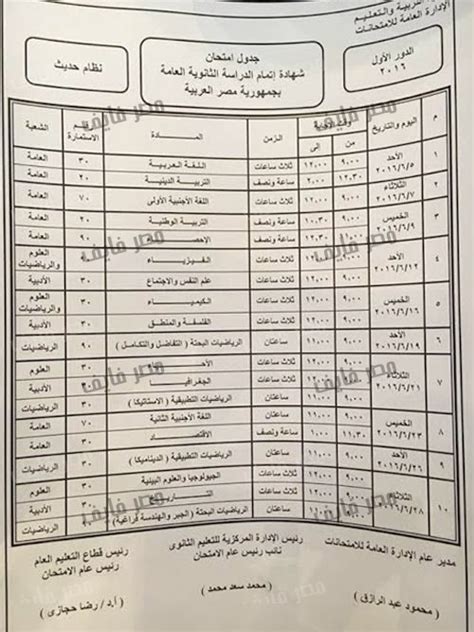 التربية والتعليم
الإدارة العامة للامتحانات
الدور الأول
٢٠١٦
جدول امتحان
شهادة إتمام الدراسة الثانوية العامة
بجمهورية مصر العربية
نظام حديث
م اليوم والتاريخ من إلى الزمن المادة رقم الاستمارة الشعبة
١ الأحد ٢٠١٦/٦/٥ ٩,٠٠ ١٢,٠٠ ثلاث ساعات اللغة العربية ٣٠ العامة
١٢,٣٠ ٢,٠٠ ساعة ونصف التربية الدينية ٢٠ العامة
٢ الثلاثاء ٢٠١٦/٦/٧ ٩,٠٠ ١٢,٠٠ ثلاث ساعات اللغة الأجنبية الأولى ٧٠ العامة
٣ الخميس ٢٠١٦/٦/٩ ٩,٠٠ ١٠,٣٠ ساعة ونصف التربية الوطنية ٢٠ العامة
ساعة ونصف الإحصاء ٢٠ العامة
٤ الأحد ٢٠١٦/٦/١٢ ٩,٠٠ ١٢,٠٠ ثلاث ساعات الفيزياء العلوم والرياضيات
ثلاث ساعات علم النفس والاجتماع ٣٠ الأدبية
٥ الخميس ٢٠١٦/٦/١٦ ٩,٠٠ ١٢,٠٠ ثلاث ساعات الكيمياء ٣٠ العلوم والرياضيات
ثلاث ساعات الفلسفة والمنطق ٣٠ الأدبية
٦ الأحد ٢٠١٦/٦/١٩ ٩,٠٠ ساعتان الرياضيات البحتة ( التفاضل والتكامل ) ٩٠ الرياضيات
٧ الثلاثاء ٢٠١٦/٦/٢١ ٩,٠٠ ١٢,٠٠ ثلاث ساعات الأحياء ٣٠ العلوم
ثلاث ساعات الجغرافيا ٣٠ الأدبية
ساعتان الرياضيات التطبيقية ( الاستاتيكا ) ٣٠ الرياضيات
٨ الخميس ٢٠١٦/٦/٢٣ ٩,٠٠ ١١,٠٠ ساعتان اللغة الأجنبية الثانية ٧٠ العامة
١١,٣٠ ١,٠٠ ساعة ونصف الاقتصاد ٣٠ العامة
٩ الأحد ٢٠١٦/٦/٢٦ ٩,٠٠ ١١,٠٠ ساعتان الرياضيات التطبيقية ( الديناميكا ) ٣٠ الرياضيات
١٠ الثلاثاء ٢٠١٦/٦/٢٨ ٩,٠٠ ١٢,٠٠ ثلاث ساعات الجيولوجيا والعلوم البيئية ٣٠ العلوم
ثلاث ساعات التاريخ الأدبية
ساعتان الرياضيات البحتة ( الجبر والهندسة فراغية ) الرياضيات
مدير عام الإدارة العامة للامتحانات
( محمود عبد الرازق )
رئيس الإدارة المركزية للتعليم الثانوى
نائب رئيس عام الامتحان
( محمد سعد محمد )
رئيس قطاع التعليم العام
رئيس عام الامتحان
( أ.د/ رضا حجازى )
مصر فايف